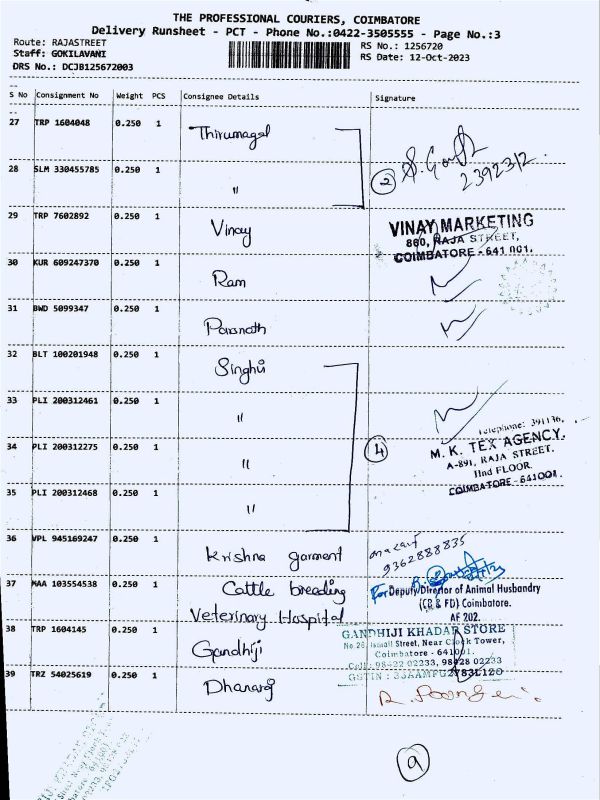 THE PROFESSIONAL COURIERS, COIMBATORE
Delivery Runsheet - PCT - Phone No.:0422-3505555 - Page No.:3
Route: RAJASTREET
Staff: GOKILAVANI
DRS No.: DCJB125672003
RS No.: 1256720
RS Date: 12-Oct-2023
S No Consignment No Weight PCS Consignee Details Signature
27 TRP 1604048 0.250 1 Thirumagal
28 SLM 330455785 0.250 1 "
2 2392312
29 TRP 7602892 0.250 1 Vinay
VINAY MARKETING
860, RAJA STREET,
COIMBATORE - 641 001.
30 KUR 609247370 0.250 1 Ram
31 BWD 5099347 0.250 1 Parasnath
32 BLT 100201948 0.250 1 Singhvi
33 PLI 200312461 0.250 1 "
34 PLI 200312275 0.250 1 "
35 PLI 200312468 0.250 1 "
4
Telephone: 391136.
M. K. TEX AGENCY.
A-891, RAJA STREET.
IInd FLOOR.
COIMBATORE - 641001.
36 VPL 945169247 0.250 1 Krishna garment
9362888835
37 MAA 103554538 0.250 1 Cattle breading
Veterinary Hospital
For Deputy Director of Animal Husbandry
(CB & FD) Coimbatore.
AF 202.
38 TRP 1604145 0.250 1 Gandhiji
GANDHIJI KHADAR STORE
No 26, Ismail Street, Near Clock Tower,
Coimbatore - 641001.
Cell: 98422 02233, 98428 02233
39 TRZ 54025619 0.250 1 Dhanaraj